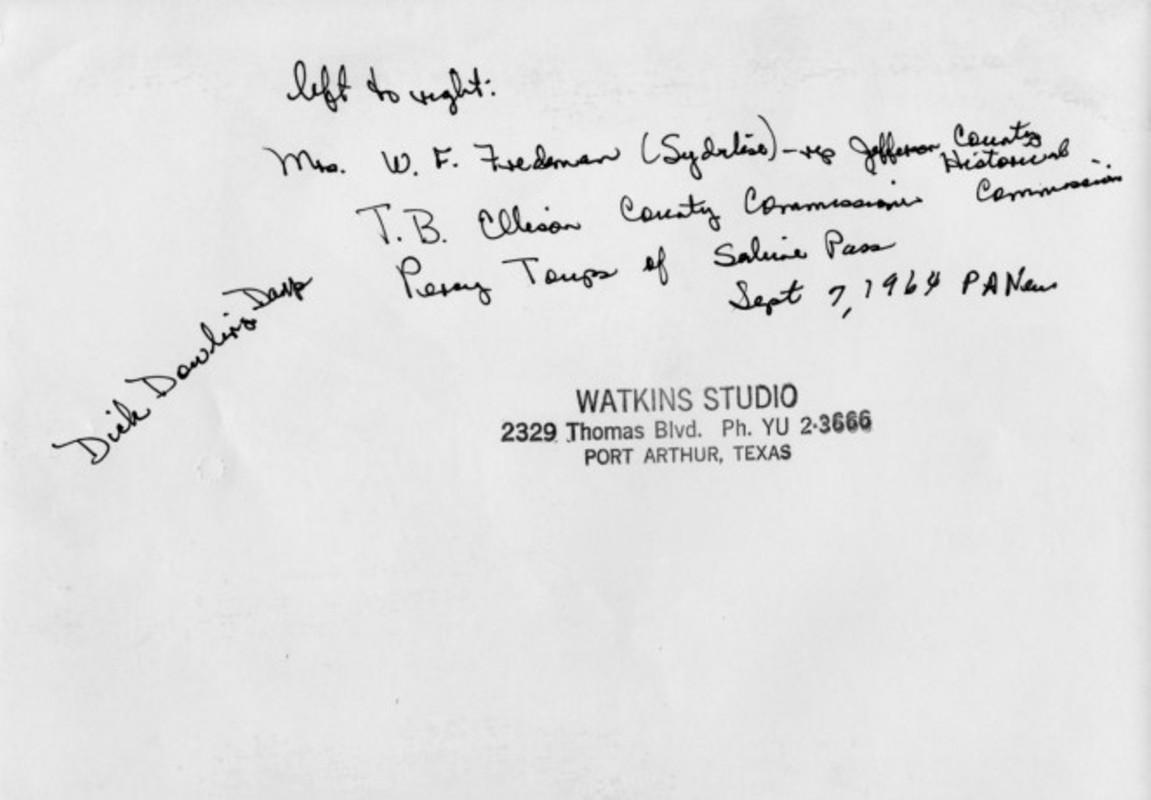 left to right:
Mrs. W. F. Fredeman (Sydalise) - rep Jefferson County Historical Commission
T. B. Ellison County Commissioner
Percy Toups of Sabine Pass
Sept 7, 1964 PA News
Dick Dowling Days
WATKINS STUDIO
2329 Thomas Blvd. Ph. YU 2-3666
PORT ARTHUR, TEXAS